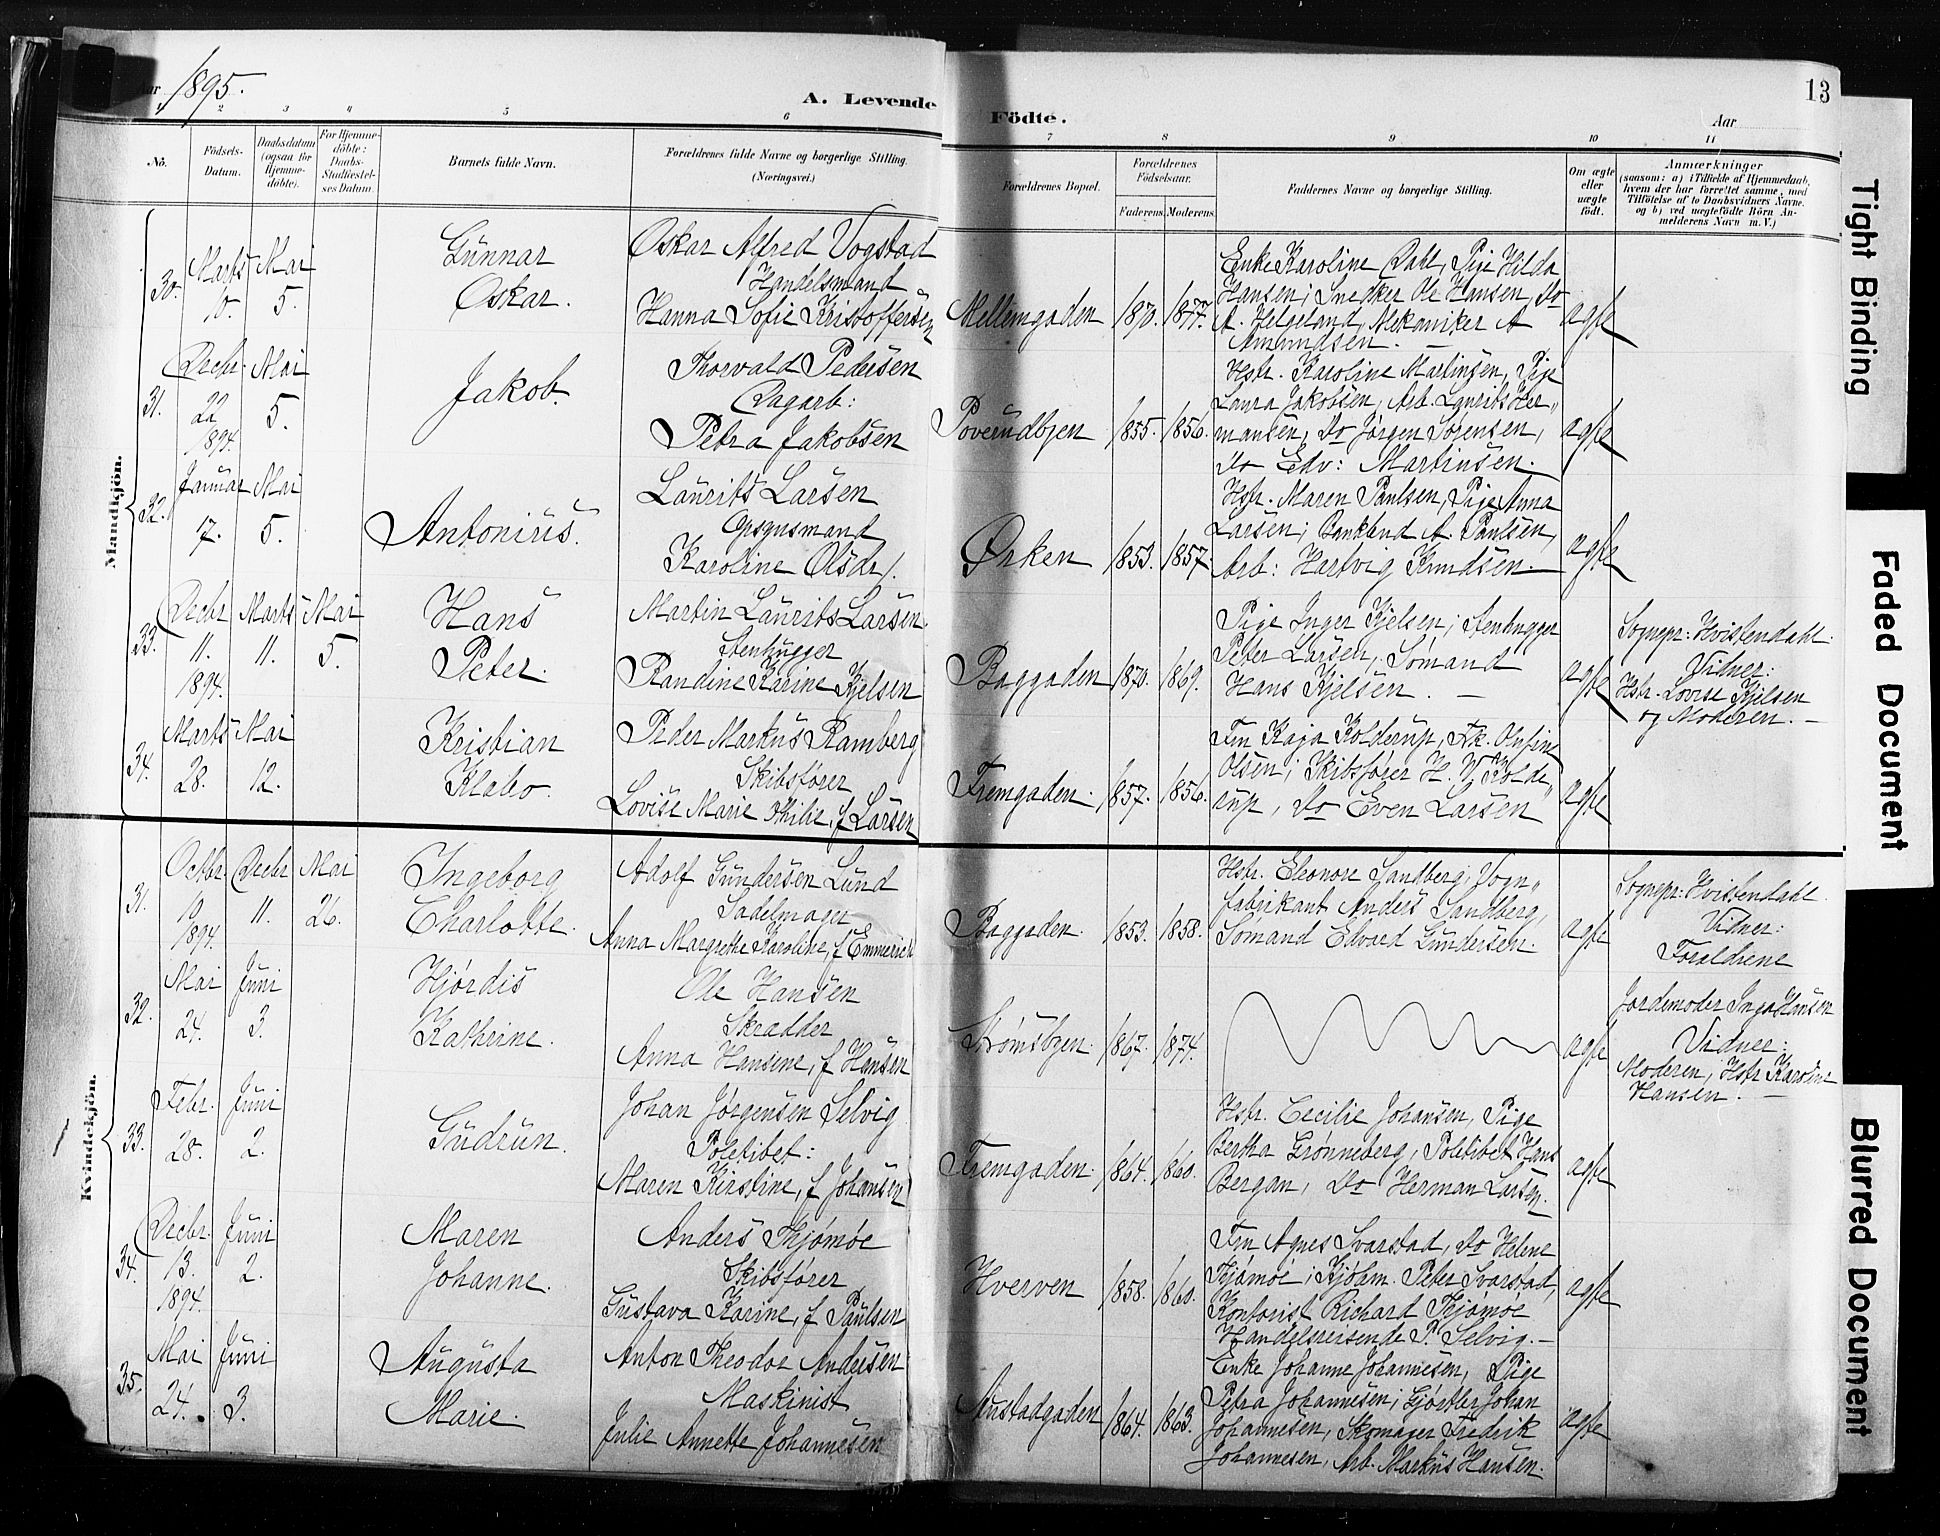 Aar 1895.
A. Levende Födte.
Aar
13
1 2 3 4 5 6 7 8 9 10 11
No.
Födsels-Datum.
Daabsdatum (ogsaa for Hjemmedöbte).
For Hjemmedöbte: Daabs-Stadfæstelses Datum.
Barnets fulde Navn.
Forældrenes fulde Navne og borgerlige Stilling.
(Næringsvei.)
Forældrenes Bopæl.
Forældrenes Födselsaar.
Faderens. Moderens.
Faddernes Navne og borgerlige Stilling.
Om ægte eller uægte födt.
Anmærkninger
(saasom: a) i Tilfælde af Hjemmedaab,
hvem der har forrettet samme, med
Tilföielse af to Daabsvidners Navne.
og b) ved uægtefödte Börn An-
melderens Navn m. V.)
Mandkjön.
30. Marts 10. Mai 5.
Gunnar
Oskar.
Oskar Alfred Vogstad
Handelsmand
Hanna Sofie Kristoffersen
Mellemgaden 1870. 1877.
Enke Karoline Dahl, Pige Hilda
Hansen; Snedker Ole Hansen, Do
A. Helgeland, Mekaniker A
Amundsen. —
ægte
31. Decbr. 22 1894. Mai 5.
Jakob.
Thorvald Pedersen
Dagarb:
Petra Jakobsen
Poverudbjen 1855. 1856.
Hstr. Karoline Martinsen, Pige
Laura Jakobsen, Arb. Laurits Her„
mansen, Do Jørgen Sørensen,
Do Edv: Martinsen.
ægte
32. Januar 17. Mai 5.
Antonius.
Laurits Larsen
Karoline Olsdr.
Ørken 1853. 1857.
Hstr. Maren Paulsen, Pige Anna
Larsen; Bankbud A. Paulsen,
Arb: Hartvig Knudsen.
ægte
33. Decbr 11. 1894. Marts 11. Mai 5.
Hans
Peter.
Martin Laurits Larsen
Stenhugger
Randine Karine Kjelsen
Baggaden 1870. 1869.
Pige Inger Kjelsen; Stenhugger
Peter Larsen, Sømand
Hans Kjelsen. —
ægte
Sognepr: Hvistendahl.
Vidner:
Hstr. Lovise Kjelsen
og Moderen. —
34. Marts 28. Mai 12.
Kristian
Klabo.
Peder Markus Ramberg
Skibsfører
Lovise Marie Thilie, f Larsen
Fremgaden. 1857. 1856.
Fru Kaja Kolderup, Frk. Olufine
Olsen; Skibsfører H. W. Kolde„
rup, Do Even Larsen
ægte
Kvindekjön.
31. Octbr. 10 1894. Decbr 11. Mai 26.
Ingeborg
Charlotte.
Adolf Gundersen Lund
Sadelmager
Anna Margrethe Karoline, f Emmerich
Baggaden. 1853. 1858.
Hstr. Eleonore Sandberg, Vogn„
fabrikant Anders Sandberg,
Sømand Edvard Gundersen.
ægte
Sognepr: Hvistendahl.
Vidner:
Forældrene
32. Mai 24. Juni 3.
Hjørdis
Kathrine.
Ole Hansen
Skrædder
Anna Hansine, f Hansen
Strømsbyen. 1867. 1874.
ægte
Jordemoder Inga Hansen
Vidner:
Moderen, Hstr Karoline
Hansen. —
33. Febr. 28. Juni 2.
Gudrun.
Johan Jørgensen Selvig
Politibet:
Maren Kirstine, f Johansen
Fremgaden. 1864. 1860.
Hstr. Cecilie Johansen, Pige
Bertha Grønneberg, Politibet Hans
Bergan, Do Herman Larsen.
ægte
34. Decbr. 13. 1894. Juni 2.
Maren
Johanne.
Anders Thjømøe
Skibsfører
Gustava Karine, f Paulsen
Hverven 1858. 1860.
Fru Agnes Svarstad, Do Helene
Thjømøe; Kjøbm. Peter Svarstad,
Kontorist Richard Thjømøe
Handelsreisende P. Selvig. —
ægte
35. Mai 24. Juni 3.
Augusta
Marie.
Anton Theodor Andersen
Maskinist
Julie Annette Johannesen
1864. 1863.
Enke Johanne Johannesen, Pige
Petra Johannesen; Gjørtler Johan
Johannesen, Skomager Fredrik
Johannesen, Arb. Markus Hansen.
ægte
Tight Binding
Faded Document
Blurred Document